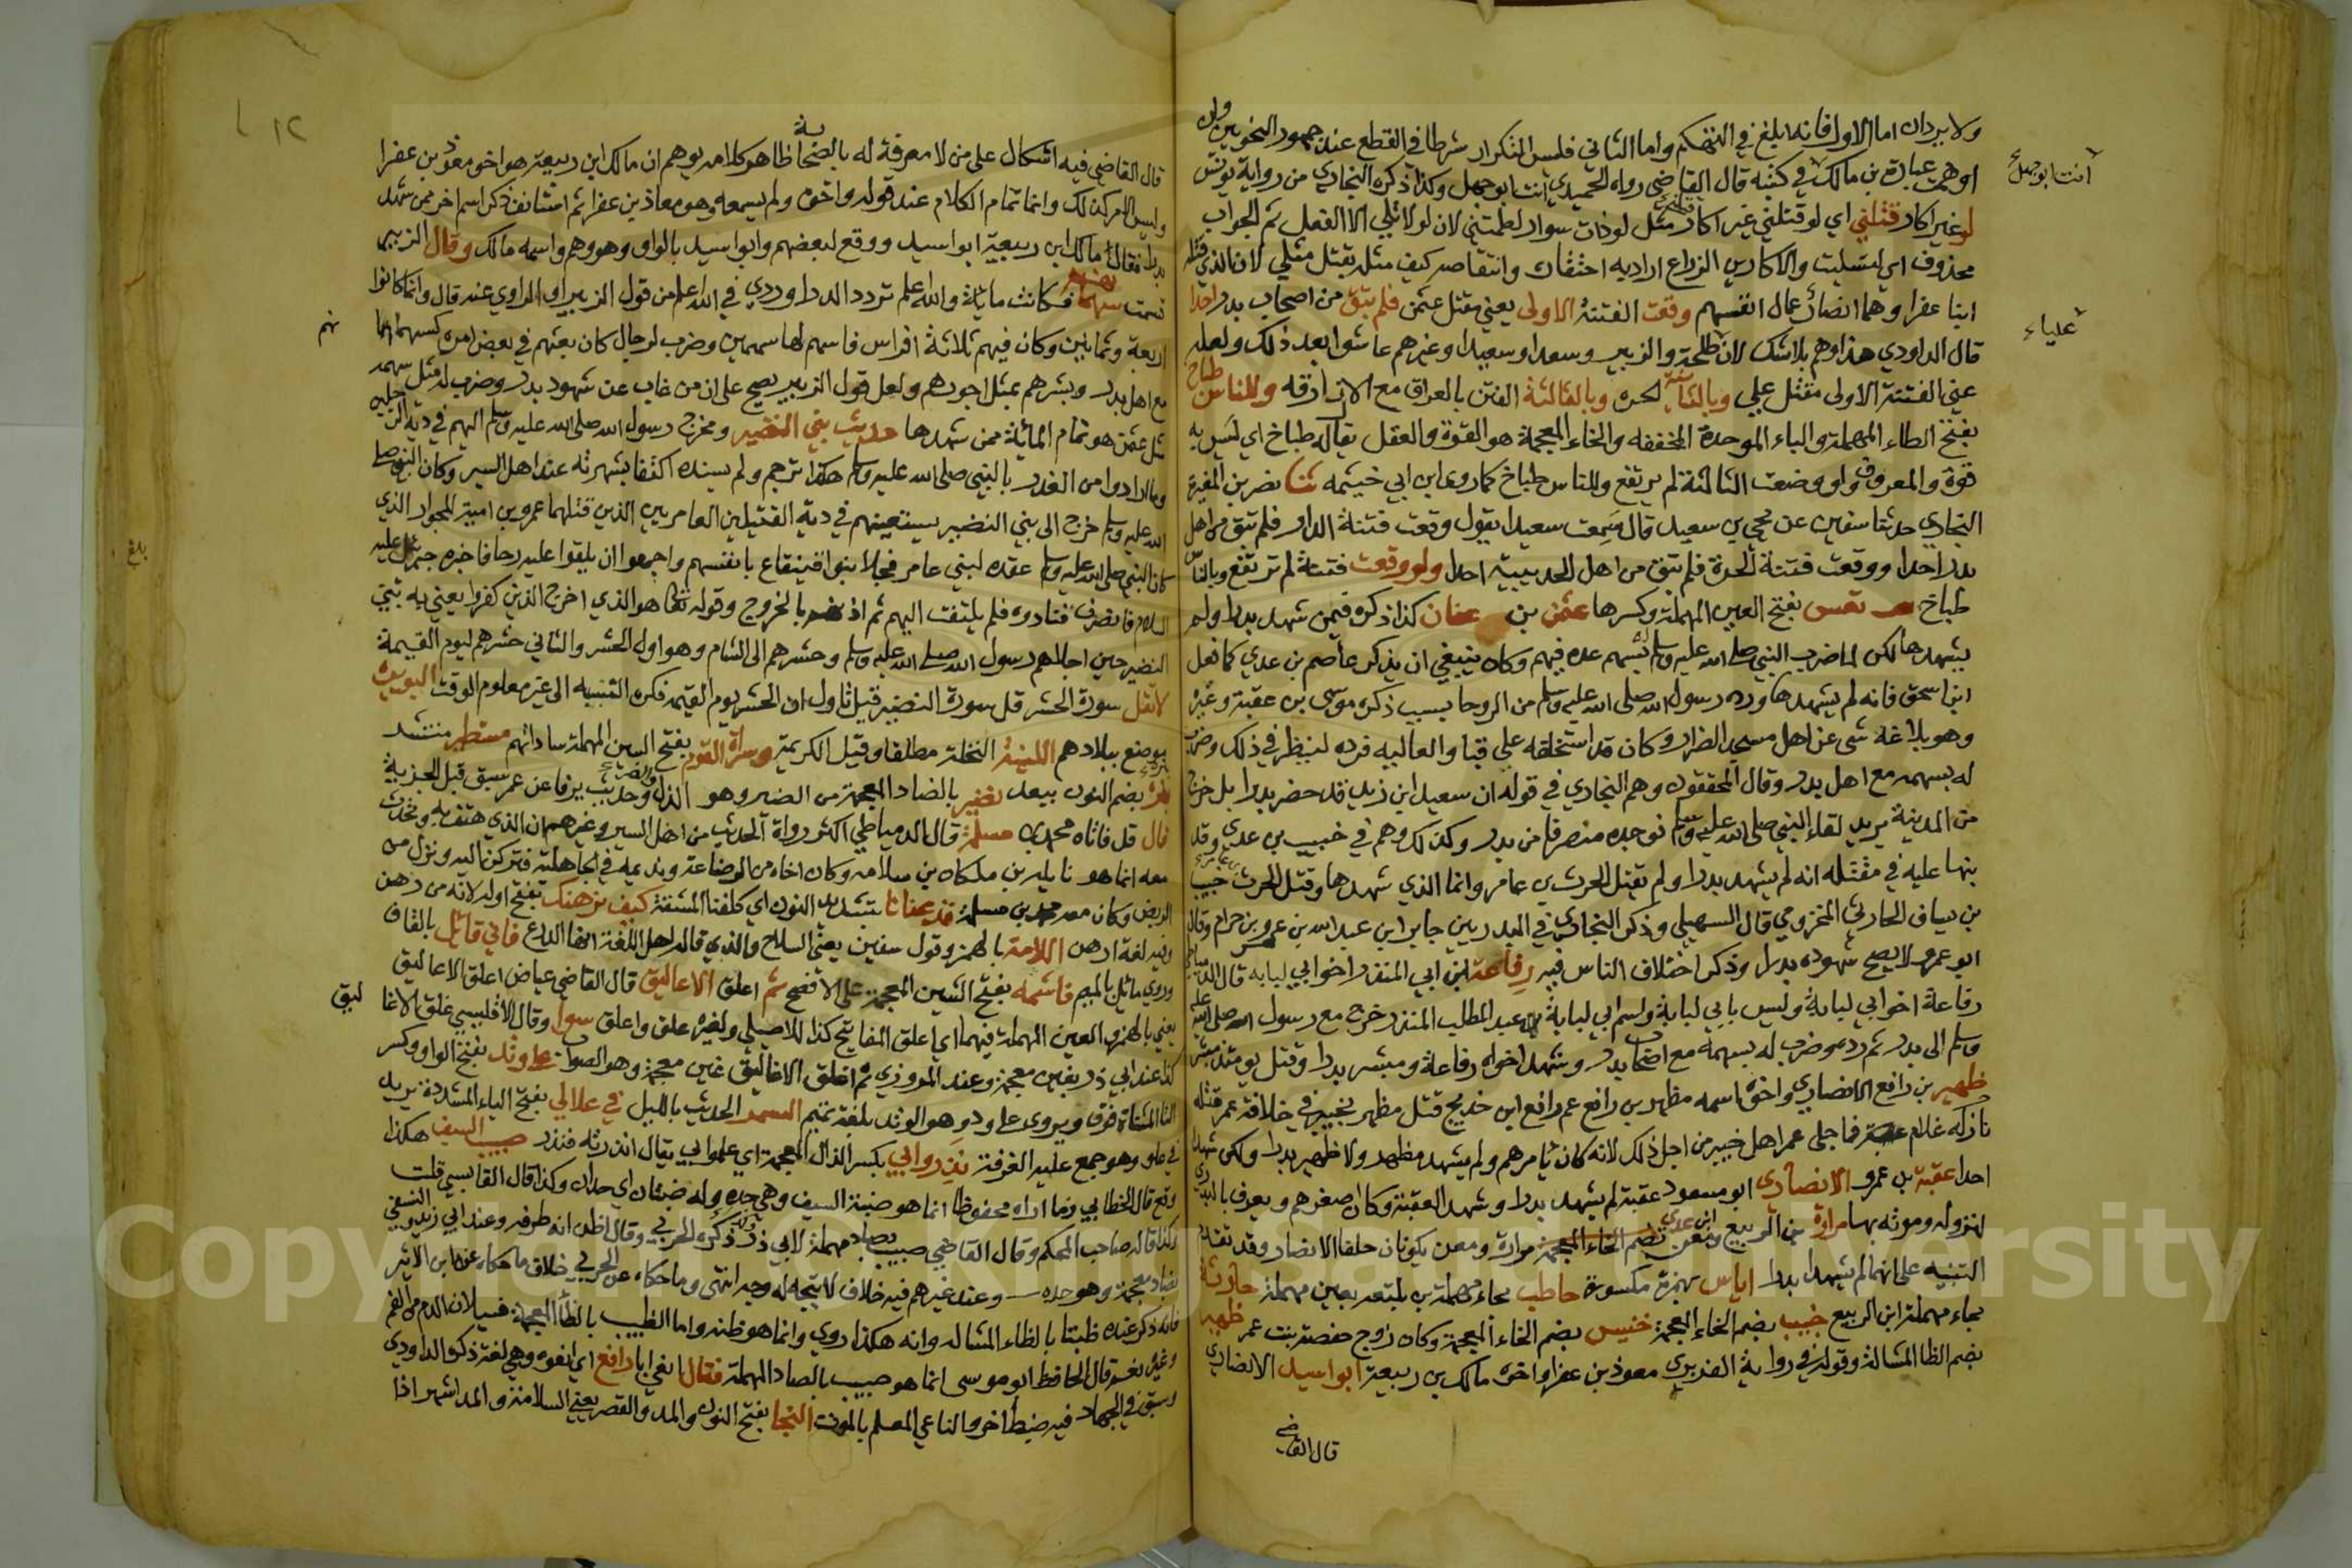 ولا يردان اما الاول فانه ابلغ في التهكم واما الثاني فليس التكرار شرطا في القطع عند جمهور النحويين وان
اوهمت عبارة بن مالك في كتبه قال القاضي رواه الحميدي انت ابو جهل وكذا ذكره البخاري من رواية يونس
لو غير اكار قتلني اي لو قتلني غير اكار مثل لو ذات سوار لطمتني لان لو لا تلي الا الفعل ثم الجواب
محذوف اي لتسليت والاكارين الزراع اراد به احتقار وانتقاصه كيف مثله يقتل مثلي لان الذي قتله
ابنا عفرا وهما انصار عمال انفسهم وقعت الفتنة الاولى يعني مقتل عثمن فلم تبق من اصحاب بدر احدا
قال الداودي هذا وهم بلا شك لان عليا وطلحة والزبير وسعدا وسعيدا وغيرهم عاشوا بعد ذلك ولعله
عني الفتنة الاولى مقتل علي وبالثانية لحره وبالثالثة الفتن بالعراق مع الازارقه وللناس طباخ
بفتح الطاء المهملة والباء الموحدة المخففه والخاء المعجمة هو القوة والعقل يقال له طباخ اي ليس به
قوة والمعروف ولو وضعت الثالثة لم يرتفع وللناس طباخ كما روى ابن ابي خيثمه ثنا نصر بن المغيرة
البخاري حدثنا سفين عن يحيى بن سعيد قال سمعت سعيدا يقول وقعت فتنة الدار فلم تبق من اهل
بدر احدا ووقعت فتنة الحرة فلم تبق من اهل الحديبية احدا ولو وقعت فتنة لم ترتفع وبالناس
طباخ تعس بفتح العين المهملة وكسرها عثمن بن عفان كذا ذكره فيمن شهد بدرا ولم
يشهدها لكن لما ضرب النبي صلى الله عليه وسلم بسهم عده فيهم وكان ينبغي ان يذكر عاصم بن عدي كما فعل
ابن اسحق فانه لم يشهدها ورده رسول الله صلى الله عليه وسلم من الروحا بسبب ذكره موسى بن عقبة وغيره
وهو بلاغه شي عن اهل مسجد الضرار وكان قد استخلفه على قبا والعاليه فرده لينظر في ذلك وضرب
له بسهمه مع اهل بدر وقال المحققون وهم البخاري في قوله ان سعيد ابن زيد قد حضر بدرا بل خرج
من المدينة يريد لقاء النبي صلى الله عليه وسلم فوجده منصرفا من بدر وكذلك وهم في خبيب بن عدي وقد
نبها عليه في مقتله انه لم يشهد بدرا ولم يقتل الحرث بن عامر وانما الذي شهدها وقتل الحرث خبيب
بن يساف الحارثي المخزومي قال السهيلي وذكر البخاري في البدريين جابر ابن عبد الله بن عمرو بن حرام وقال
ابو عمر لا يصح شهوده بدرا وذكر اختلاف الناس فيه رفاعة ابن ابي المنذر اخو ابي لبابه قال الدمياطي
رفاعة اخو ابي لبابة وليس بابي لبابة واسم ابي لبابة بن عبد المطلب المنذر خرج مع رسول الله صلى الله عليه
وسلم الى بدر ثم رده وضرب له بسهمه مع اصحاب بدر وشهد اخواه رفاعة ومبشر بدرا وقتل يومئذ مبشر
ظهير بن رافع الانصاري واخوه اسمه مظهر بن رافع عم رافع ابن خديج قتل مظهر بخيبر في خلافة عمر قتله
احدا عقبة بن عمرو الانصاري ابو مسعود عقبة لم يشهد بدرا وشهد العقبة وكان اصغرهم ويعرف بالبدري
لنزوله وموته بها مرارة بن الربيع ومعن ابن عدي بضم الخاء المعجمة مرارة ومعن يكونان حلفا الانصار وقد تقدم
التنبيه على انهما لم يشهدا بدرا اياس بهمزة مكسورة حاطب بحاء مهملة بن بلتعه بعين مهملة حارثة
بحاء مهملة ابن الربيع خبيب بضم الخاء المعجمة خنيس بضم الخاء المعجمة وكان زوج حفصة بنت عمر ظهير
بضم الظا المشالة وقوله في رواية الفربري معوذ بن عفرا واخوه مالك بن ربيعة ابو اسيد الانصاري
قال القاضي
انت ابو جهل
علياء
١٢
قال القاضي فيه اشكال على من لا معرفة له بالصحابة اذ ظاهر كلامه يوهم ان مالك ابن ربيعة هو اخو معوذ بن عفرا
وليس الامر كذلك وانما تمام الكلام عند قوله واخوه ولم يسمه وهو معاذ بن عفرا ثم استانف ذكر اسم اخر ممن شهد
بدرا فقال مالك ابن ربيعة ابو اسيد ووقع لبعضهم وابو اسيد بالواو وهو وهم واسمه مالك وقال الزبير
قسمت سهمانهم فكانت مائة والله اعلم تردد الداوردي في الله اعلم من قول الزبير او الراوي عنه قال وانما كانوا
اربعة وثمانين وكان فيهم ثلاثة افراس فاسهم لها سهمين وضرب لرجال كان بعثهم في بعض امره كسهمانهم
مع اهل بدر وبشرهم بمثل اجورهم ولعل قول الزبير يصح على ان من غاب عن شهود بدر وضرب له مثل سهمه
مثل عثمن هو تمام المائة ممن شهدها حديث بني النضير ومخرج رسول الله صلى الله عليه وسلم اليهم في دية الرجلين
وما ارادوا من الغدر بالنبي صلى الله عليه وسلم هكذا ترجم ولم يسنده اكتفا بشهرته عند اهل السير وكان النبي صلى
الله عليه وسلم خرج الى بني النضير يستعينهم في دية القتيلين العامريين الذين قتلهما عمرو بن امية للجوار الذي
كان النبي صلى الله عليه وسلم عقده لبني عامر بانفسهم واجمعوا ان يلقوا عليه رحا فاخبره جبريل عليه
السلام فانصرف فنادوه فلم يلتفت اليهم ثم اذ بالخروج وقوله تعالى هو الذي اخرج الذين كفروا يعني به بني
النضير حين اجلاهم رسول الله صلى الله عليه وسلم وحشرهم الى الشام وهو اول الحشر والثاني حشرهم ليوم القيمة
لا تقل سورة الحشر قل سورة النضير قيل تاول ان الحشر يوم القيمة فكره التنبيه الى غير معلوم الوقت البويرة
موضع ببلادهم اللينة النخلة مطلقا وقيل الكريمة وسراة القوم بفتح السين المهملة ساداتهم مستطير منتشر
بضم النون ببعد نضير بالضاد المعجمة من الضير وهو الذل وحديث يرفا عن عمر سبق قبل الجزية
قال قل فاتاه محمد بن مسلمة قال الدمياطي اكثر رواة الحديث من اهل السير وغيرهم ان الذي هتف به وتحدث
معه انما هو نايله بن ملكان بن سلامه وكان اخاه من الرضاعة ونديمه في الجاهلية فتركن اليه ونزل من
الربض وكان معه محمد بن مسلمة قد عنانا بتشديد النون اي كلفنا المشقة كيف نرهنك بفتح اوله لانه من رهن
وفيه لغة ارهن اللامة بالهمز وقول سفين يعني السلاح والذي قاله اهل اللغة انها الدرع فاني قائل بالقاف
وروي مائل بالميم فاشمه بفتح الشين المعجمة على الافصح ثم اعلق الاعاليق قال القاضي عياض اعلق الاعاليق
يعني بالهمز والعين المهملة فيهما اي اعلق المفاتيح كذا للاصيلي ولغيره علق واعلق سوا وقال الاقليبسي غلق الاغا
كذا عند ابي ذر بغين معجمة وعند المروزي ثم اغلق الاغاليق غين معجمة وهو الصواب على وتد بفتح الواو وكسر
التا المثناة فوق ويروى على ود وهو الوتد بلغة تميم السمر الحديث بالليل في علالي بفتح الياء المشددة يريد
في علو وهو جمع علية الغرفة نذروا بي بكسر الذال المعجمة اي علموا بي يقال انذرته فنذر صبيب السيف هكذا
وقع قال الخطابي وما اراه محفوظا انما هو ضبة السيف وهي حده وله ضبتان اي حدان وكذا قال القابسي قلت
وكذا قاله صاحب المحكم وقال القاضي صبيب بصاد مهملة لابي ذر وكذا ذكره الحربي وقال اظن انه طرفه وعند ابي زيد والنسفي
بضاد معجمة وهو حده وعند غيرهم فيه خلاف لا يتجه له وجه انتهى وما حكاه عن الحربي خلاف ما حكاه عنه ابن الاثير
فانه ذكر عنه ظبتا بالظاء المشاله وانه هكذا روي وانما هو ظنه واما الظبيب بالظا المعجمة فسيلان الدم من الفم
وغيره نعم قال الحافظ ابو موسى انما هو صبيب بالصاد المهملة فقال انعي ابا رافع اي انعوه وهي لغة ذكره الداودي
وسبق في الجهاد فيه ضبط اخر والناعي المعلم بالموت النجا بفتح النون والمد والقصر يعني السلامة والمد اشهر اذا
نهم
ليق
بلغ
Copyright © King Saud University